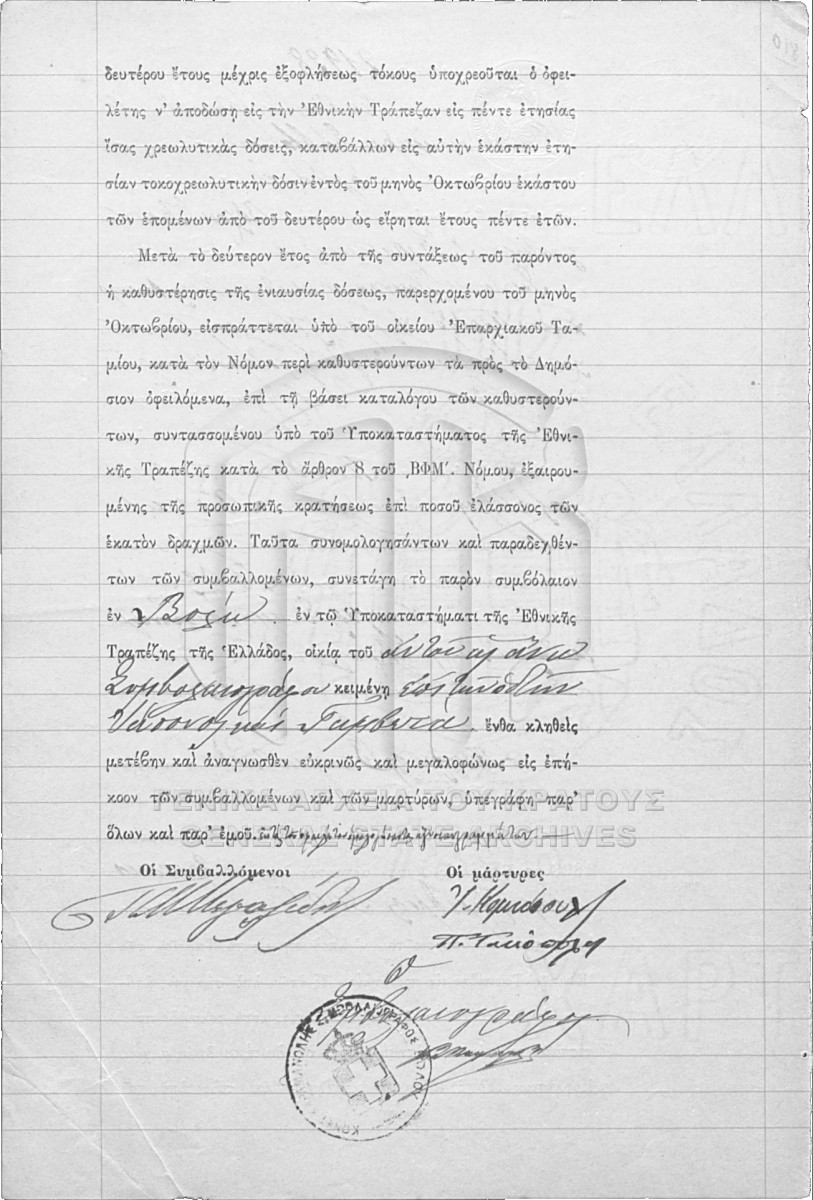 δευτέρου ἔτους μέχρις ἐξοφλήσεως τόκους ὑποχρεοῦται ὁ ὀφει-
λέτης ν' ἀποδώσῃ εἰς τὴν Ἐθνικὴν Τράπεζαν εἰς πέντε ἐτησίας
ἴσας χρεωλυτικὰς δόσεις, καταβάλλων εἰς αὐτὴν ἑκάστην ἐτη-
σίαν τοκοχρεωλυτικὴν δόσιν ἐντὸς τοῦ μηνὸς Ὀκτωβρίου ἑκάστου
τῶν ἑπομένων ἀπὸ τοῦ δευτέρου ὡς εἴρηται ἔτους πέντε ἐτῶν.
Μετὰ τὸ δεύτερον ἔτος ἀπὸ τῆς συντάξεως τοῦ παρόντος
ἡ καθυστέρησις τῆς ἐνιαυσίας δόσεως, παρερχομένου τοῦ μηνὸς
Ὀκτωβρίου, εἰσπράττεται ὑπὸ τοῦ οἰκείου Ἐπαρχιακοῦ Τα-
μίου, κατὰ τὸν Νόμον περὶ καθυστερούντων τὰ πρὸς τὸ Δημό-
σιον ὀφειλόμενα, ἐπὶ τῇ βάσει καταλόγου τῶν καθυστερούν-
των, συντασσομένου ὑπὸ τοῦ Ὑποκαταστήματος τῆς Ἐθνι-
κῆς Τραπέζης κατὰ τὸ ἄρθρον 8 τοῦ ͵ΒΦΜ΄. Νόμου, ἐξαιρου-
μένης τῆς προσωπικῆς κρατήσεως ἐπὶ ποσοῦ ἐλάσσονος τῶν
ἑκατὸν δραχμῶν. Ταῦτα συνομολογησάντων καὶ παραδεχθέν-
των τῶν συμβαλλομένων, συνετάγη τὸ παρὸν συμβόλαιον
ἐν Βόλῳ ἐν τῷ Ὑποκαταστήματι τῆς Ἐθνικῆς
Τραπέζης τῆς Ἑλλάδος, οἰκίᾳ τοῦ
Συμβολαιογράφου κειμένῃ
ἔνθα κληθεὶς
μετέβην καὶ ἀναγνωσθὲν εὐκρινῶς καὶ μεγαλοφώνως εἰς ἐπή-
κοον τῶν συμβαλλομένων καὶ τῶν μαρτύρων, ὑπεγράφη παρ'
ὅλων καὶ παρ' ἐμοῦ.
ΓΕΝΙΚΑ ΑΡΧΕΙΑ ΤΟΥ ΚΡΑΤΟΥΣ
GENERAL STATE ARCHIVES
Οἱ Συμβαλλόμενοι Οἱ μάρτυρες
Ὁ
Συμβολαιογράφος
ΣΥΜΒΟΛΑΙΟΓΡΑΦΟΣ ΒΟΛΟΥ